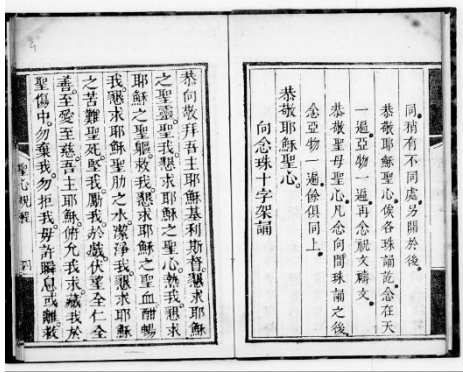 同稍有不同處。另開於後。
恭敬耶穌聖心。俟各珠誦訖。念在天
一遍。亞物一遍。再念祝文禱文。
恭敬聖母聖心。凡念向間珠誦之後。
念亞物一遍。餘俱同上。
恭敬耶穌聖心。
向念珠十字架誦
恭向敬拜吾主耶穌基利斯督。懇求耶穌
之聖靈。聖我。懇求耶穌之聖心。熱我。懇求
耶穌之聖軀。救我。懇求耶穌之聖血。酣暢
我。懇求耶穌聖肋之水。潔淨我。懇求耶穌
之苦難聖死。堅我。勵我。於戲。伏望全仁全
善。至愛至慈。吾主耶穌。俯允我求。藏我於
聖傷中。勿棄我。勿拒我。毋許瞬息或離。救
聖心規程